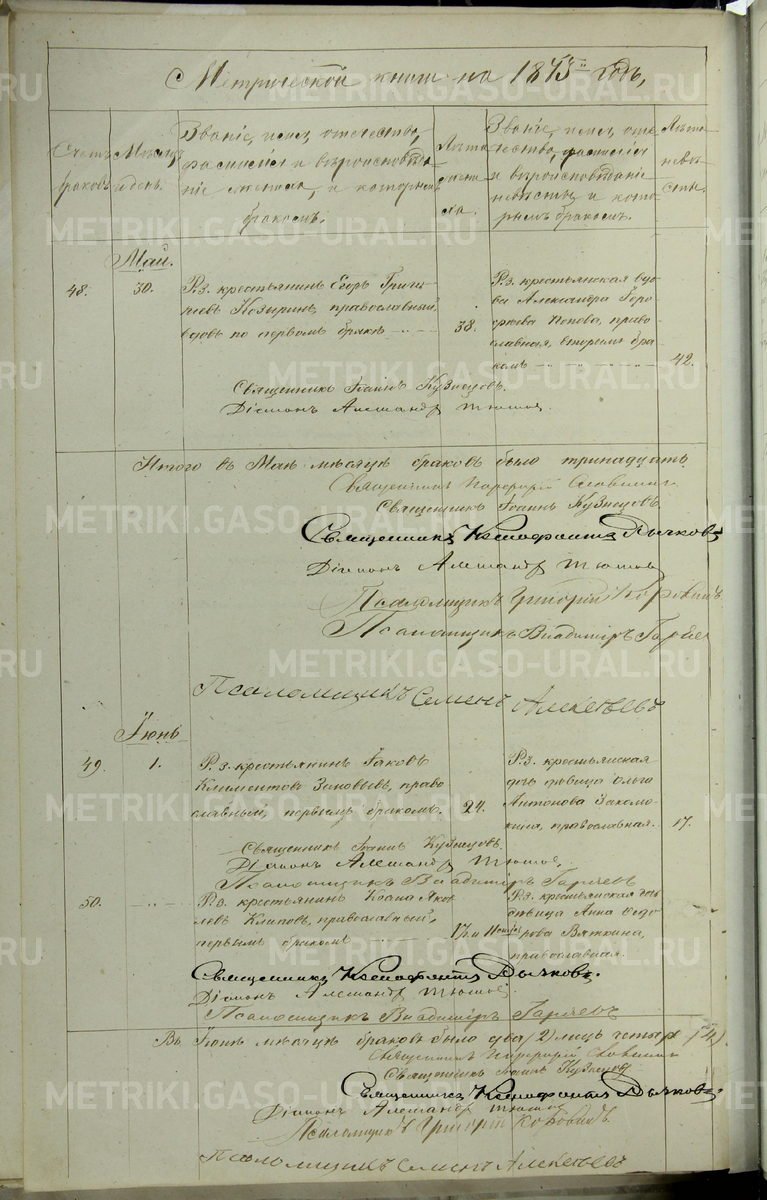 Метрической книги на 1875й годъ,
Счетъ браковъ.
Мѣсяцъ и день.
Званіе, имя, отечество,
фамилія и вѣроисповѣда-
ніе жениха, и которымъ
бракомъ.
Лѣта жени-
ха.
Званіе, имя, оте-
чество, фамилія
и вѣроисповѣданіе
невѣсты и кото-
рымъ бракомъ.
Лѣта
невѣ-
сты.
Май.
48.
30.
Р. з. крестьянинъ Егоръ Григо-
рьевъ Козыринъ, православный
вдовъ по первомъ бракѣ
38.
Р. з. крестьянская вдо-
ва Александра
Попова, право-
славная, вторымъ бра-
комъ
42.
Священникъ Іоаннъ Кузнецовъ.
Діаконъ Александръ Тюшевъ.
Итого въ Маѣ мѣсяцѣ браковъ было тринадцать
Священникъ
Священникъ Іоаннъ Кузнецовъ.
Священникъ Ксенофонтъ Дьячковъ
Діаконъ Александръ Тюшевъ
Псаломщикъ Григорій
Псаломщикъ Владиміръ Гаряевъ
Псаломщикъ Семенъ Алексѣевъ
Іюнь
49.
1.
Р. з. крестьянинъ Іаковъ
Климентовъ Зиновьевъ, право
славный, первымъ бракомъ.
24.
Р. з. крестьянская
дочь дѣвица Ольга
Антонова
православная.
17.
Священникъ Іоаннъ Кузнецовъ.
Діаконъ Александръ Тюшевъ,
Псаломщикъ Владиміръ Гаряевъ
50.
Р. з. крестьянинъ Іоаннъ Яков
левъ православный,
первымъ бракомъ
Р. з. крестьянская дочь
дѣвица Анна Ѳедо-
рова Вяткина,
православная.
Священникъ Ксенофонтъ Дьячковъ.
Діаконъ Александръ Тюшевъ.
Псаломщикъ Владиміръ Гаряевъ
Въ Іюнѣ мѣсяцѣ браковъ было два (2) лицъ четыре (4).
Священникъ
Священникъ Іоаннъ Кузнецовъ
Священникъ Ксенофонтъ Дьячковъ
Діаконъ Александръ Тюшевъ
Псаломщикъ Григорій
Псаломщикъ Семенъ Алексѣевъ
METRIKI.GASO-URAL.RU